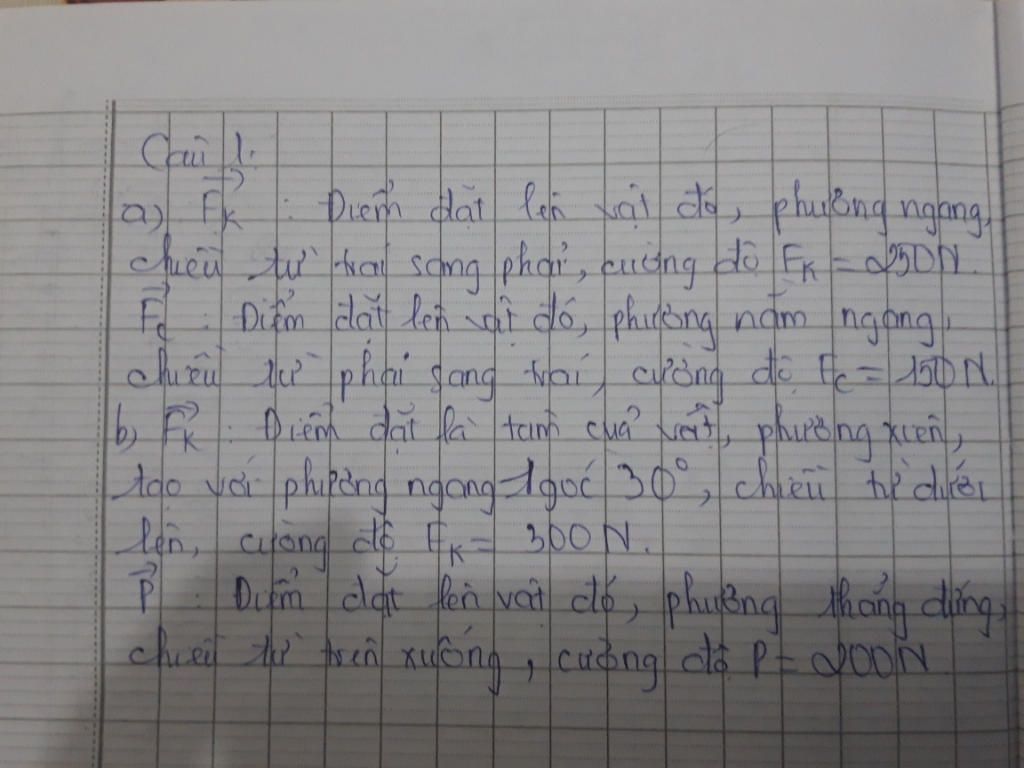 Câu 1:
a) F⃗K : Điểm đặt lên vật đó, phương ngang,
chiều từ trái sang phải, cường độ FK = 250N.
F⃗c : Điểm đặt lên vật đó, phương nằm ngang,
chiều từ phải sang trái, cường độ Fc = 150N.
b) F⃗K : Điểm đặt là tâm của vật, phương xiên,
tạo với phương ngang 1 góc 30°, chiều từ dưới
lên, cường độ FK = 300N.
P⃗ : Điểm đặt lên vật đó, phương thẳng đứng,
chiều từ trên xuống, cường độ P = 200N